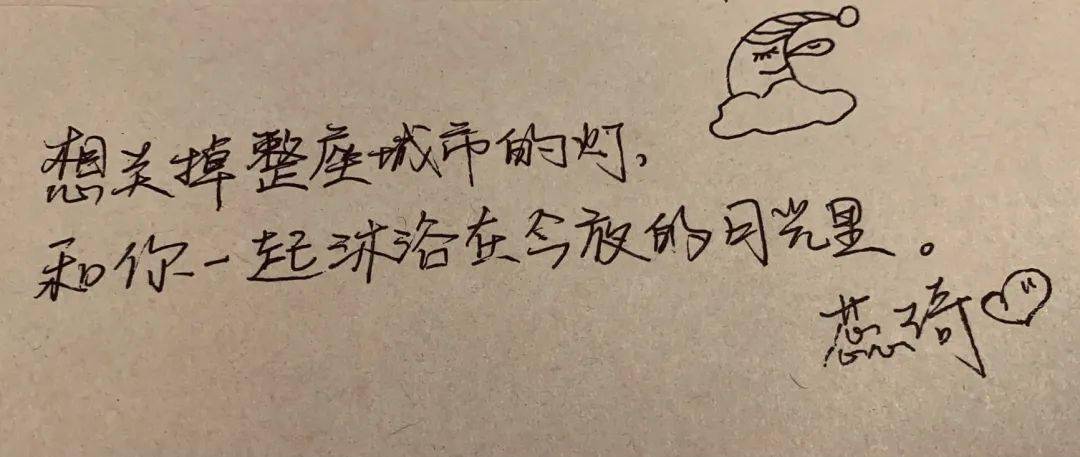 想关掉整座城市的灯,
和你一起沐浴在今夜的月光里。
蕊琦